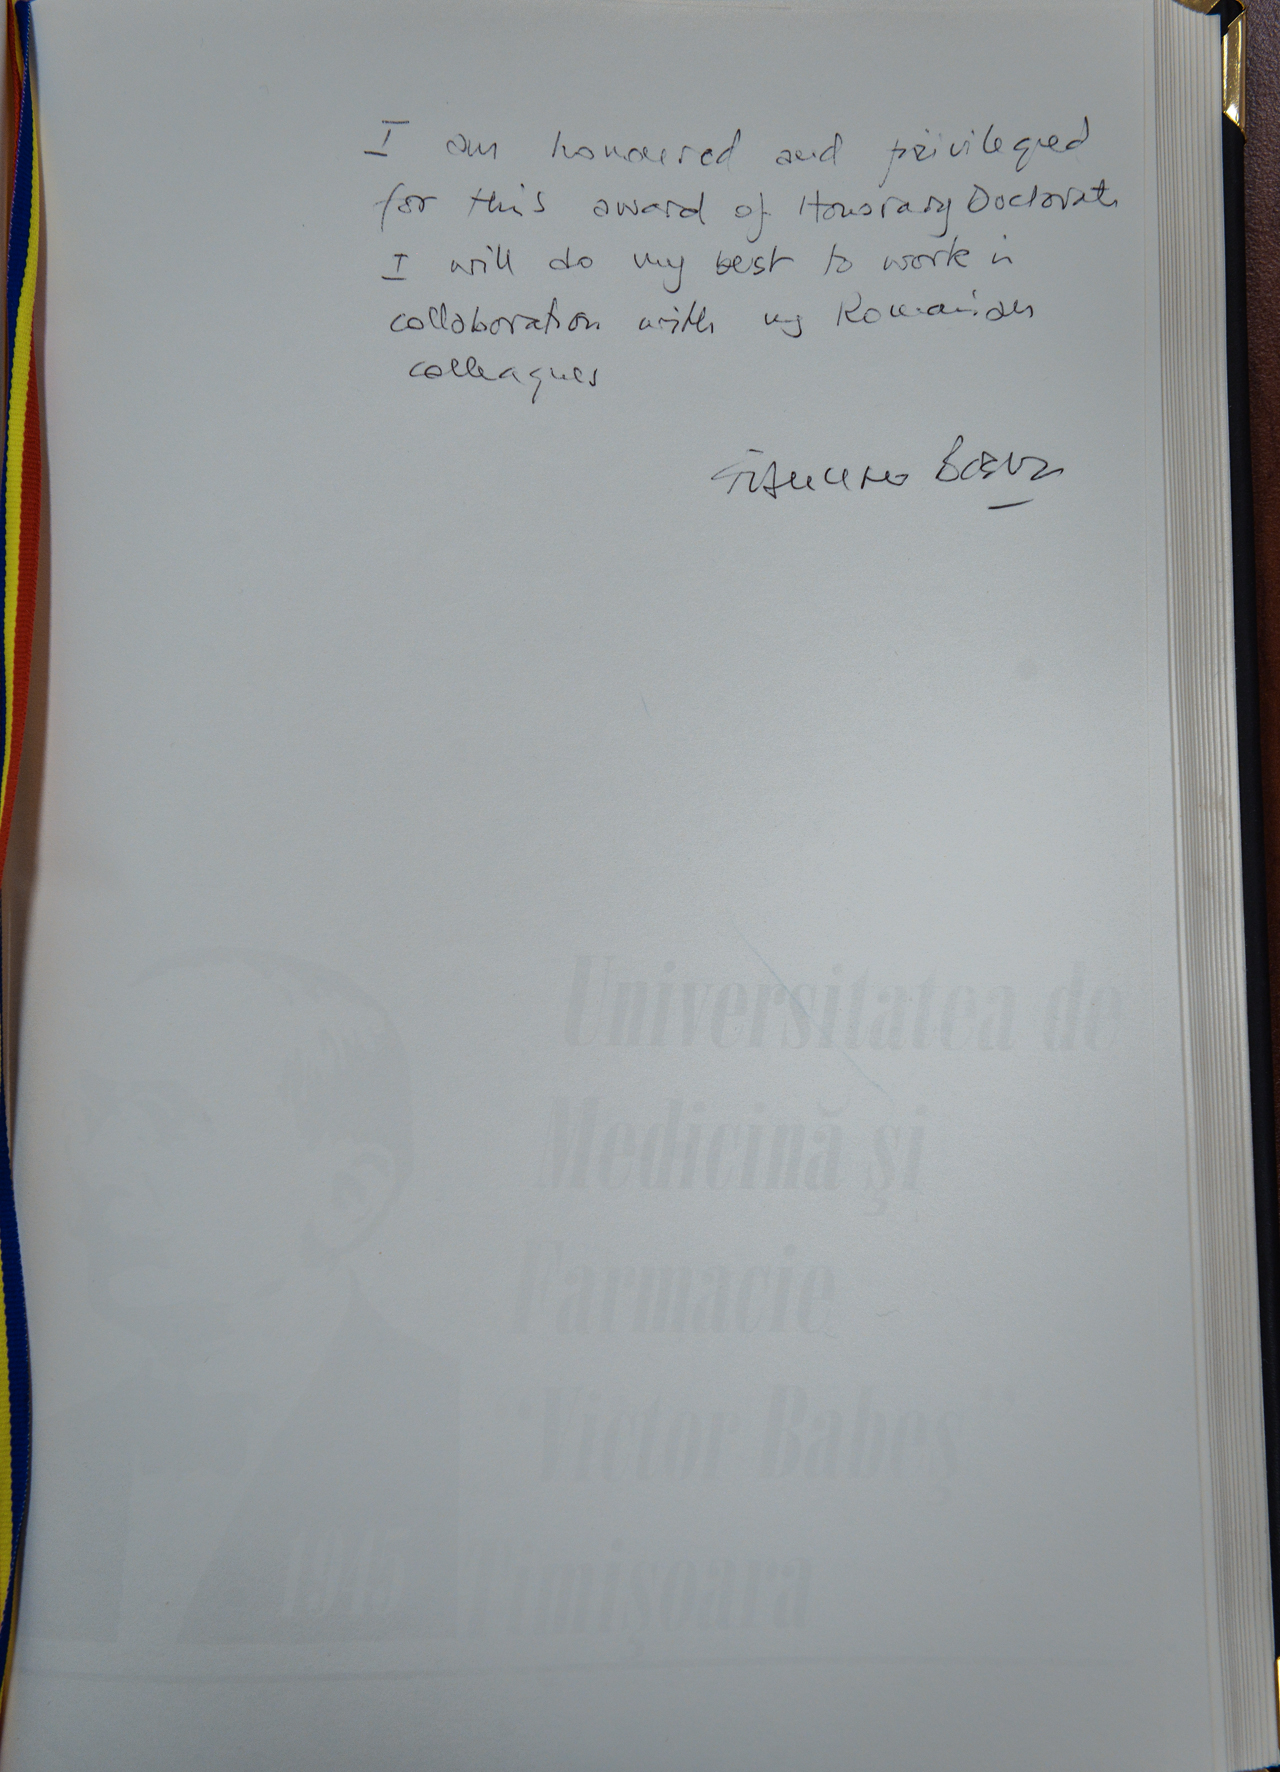 I am honoured and privileged
for this award of Honorary Doctorate
I will do my best to work in
collaboration with my Romanian
colleagues
Universitatea de
Medicină şi
Farmacie
“Victor Babeş”
1945 Timişoara